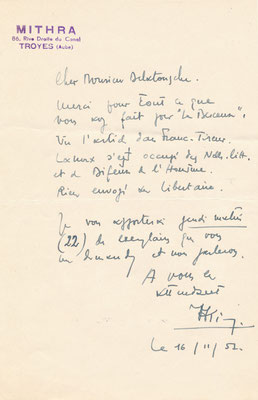 MITHRA
86, Rive Droite du Canal
TROYES (Aube)
Cher Monsieur
Merci pour tout ce que
vous avez fait pour "Le Berceau".
Vu l'article dans Franc-Tireur.
s'est occupé des Nelles. Litt.
et de Défense de l'Homme.
Rien envoyé au Libertaire.
Je vous apporterai jeudi matin
(22) les exemplaires que vous
me demandez et nous parlerons.
A vous
Le 16/11/52.